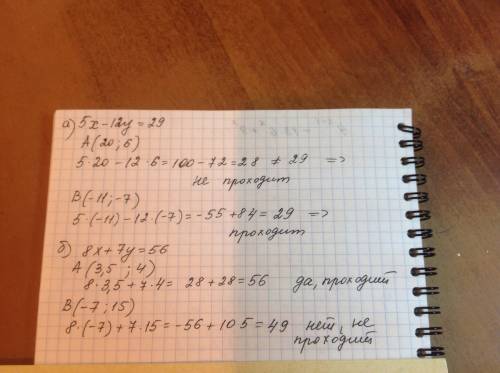 а) 5x - 12y = 29
A(20; 6)
5·20 - 12·6 = 100 - 72 = 28 ≠ 29 =>
не проходит
B(-11; -7)
5·(-11) - 12·(-7) = -55 + 84 = 29 =>
проходит
б) 8x + 7y = 56
A(3,5 ; 4)
8·3,5 + 7·4 = 28 + 28 = 56 да, проходит
B(-7; 15)
8·(-7) + 7·15 = -56 + 105 = 49 нет, не
проходит